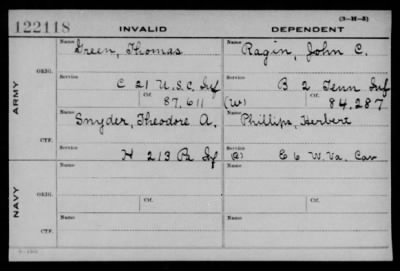 122118 INVALID DEPENDENT (3-H-3)
Name Green, Thomas Name Ragin, John C.
ARMY ORIG. Service C 21 U.S.C. Inf Service B 2 Tenn Inf
Ctf. 87,611 (W) Ctf. 84,287
Name Snyder, Theodore A. Name Phillips, Herbert
CTF. Service H 213 Pa Inf Service E 6 W. Va. Cav
NAVY ORIG. Name Name
Service Ctf. Service Ctf.
CTF. Name Name
Service Service